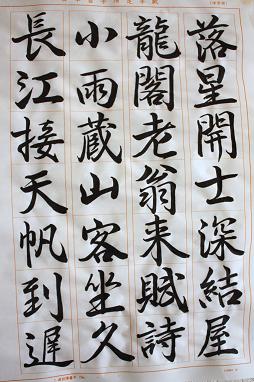 落星開士深結屋
龍閣老翁来賦詩
小雨蔵山客坐久
長江接天帆到遅